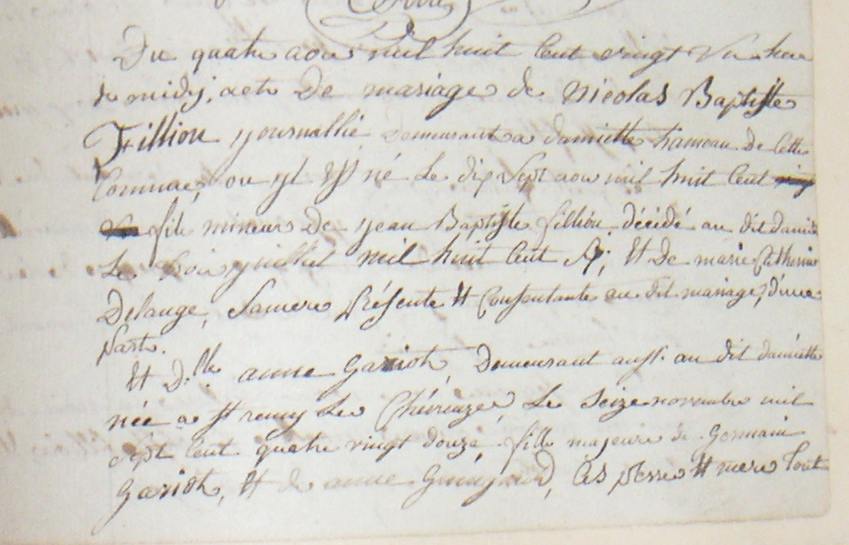 Du quatre aout mil huit Cent vingt Un heure
de midy, acte De mariage de Nicolas Baptiste
Fillion yournallié Demeurant a damiette hameau de Cette
Comune, ou yl Est né Le dix Sept aout mil huit Cent
fils mineur De yean Baptiste fillion décidé au dit damiette
Le trois yuillet mil huit Cent Six, Et de marie Catherine
Delauge, Samere Présente Et Consentante au dit mariage, d'une
Part.
Et D.lle anne Gariot, Demeurant aussi au dit damiette
née a St remy Les Chévreuze, Le Seize novembre mil
Sept Cent quatre vingt douze, fille majeure de Germain
Gariot, Et de anne, Ces Perre Et mere Tout